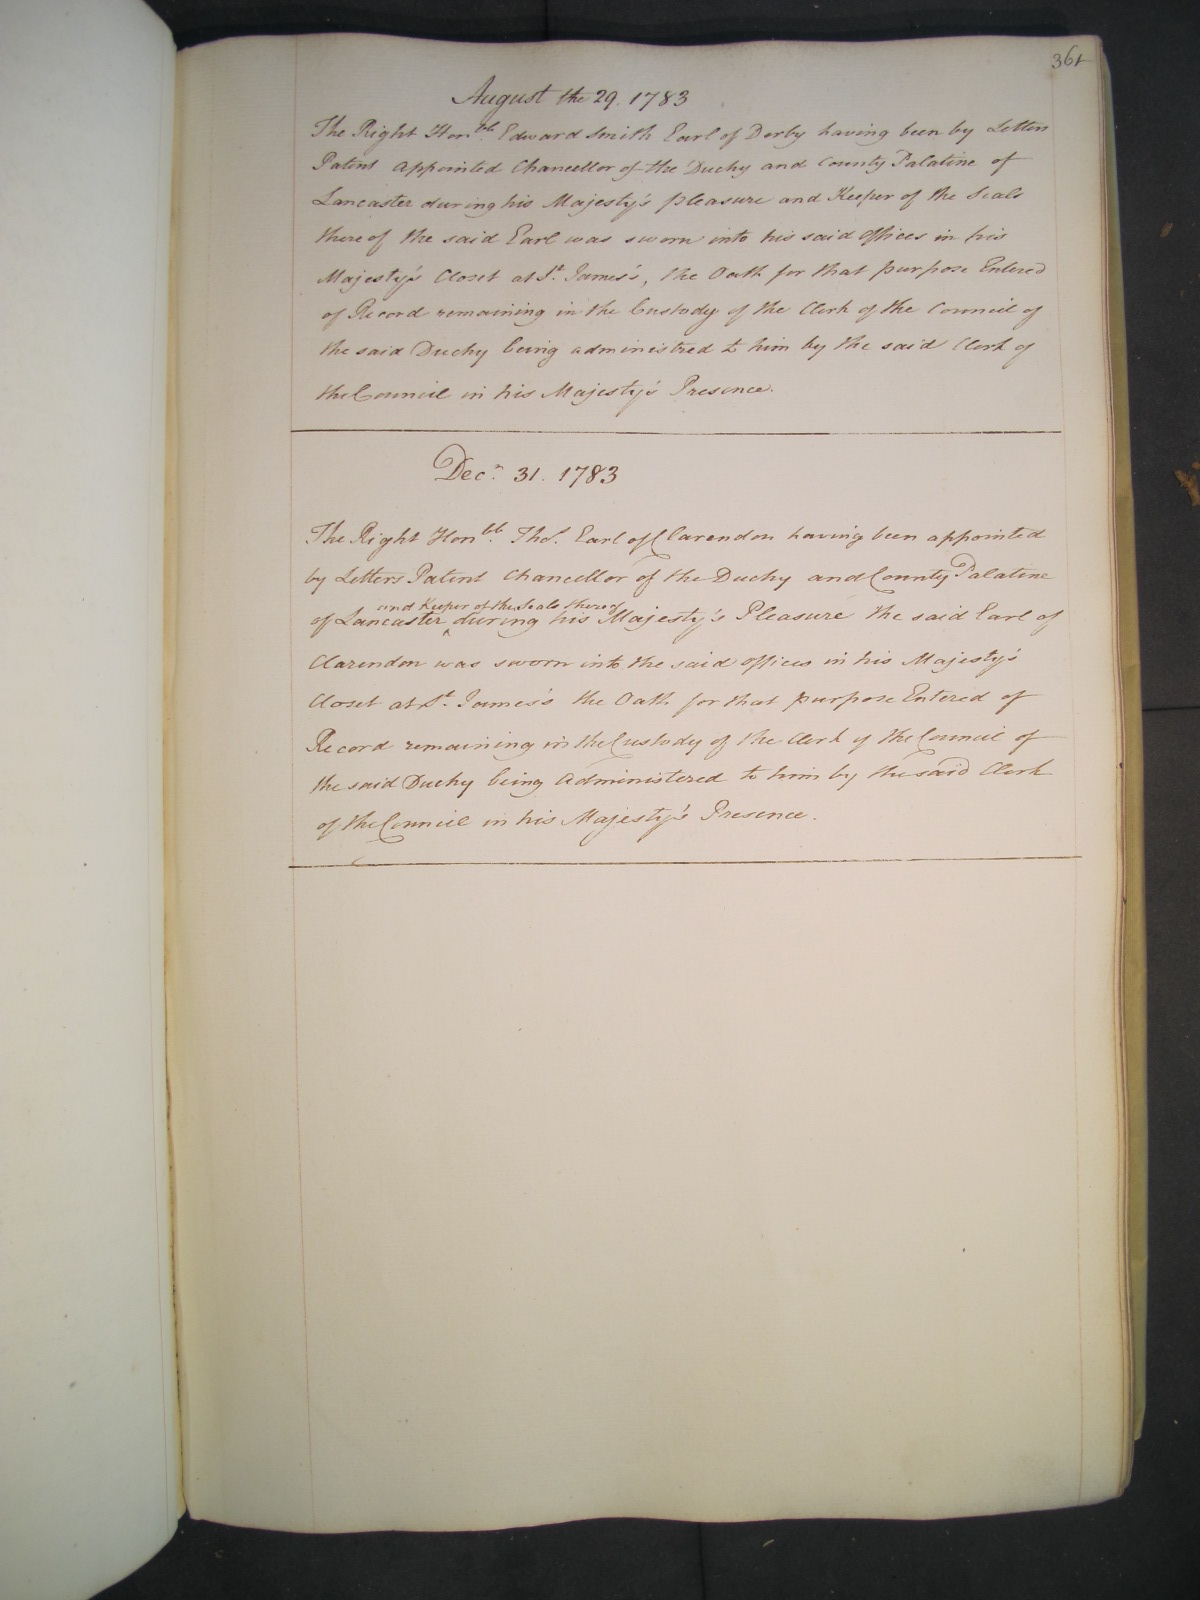 361
August the 29. 1783
The Right Hon.ble Edward Smith Earl of Derby having been by Letters
Patent Appointed Chancellor of the Duchy and County Palatine of
Lancaster during his Majesty's pleasure and Keeper of the Seals
there of the said Earl was sworn into his said Offices in his
Majesty's Closet at St. James's, the Oath for that purpose Entered
of Record remaining in the Custody of the Clerk of the Council of
the said Duchy being administred to him by the said Clerk of
the Council in his Majesty's Presence.
Decr. 31. 1783
The Right Hon.ble Thos. Earl of Clarendon having been appointed
by Letters Patent Chancellor of the Duchy and County Palatine
and Keeper of the Seals thereof
of Lancaster ^ during his Majesty's Pleasure the said Earl of
Clarendon was sworn into the said offices in his Majesty's
Closet at St. James's the Oath for that purpose Entered of
Record remaining in the Custody of the Clerk of the Council of
the said Duchy being Administered to him by the said Clerk
of the Council in his Majesty's Presence.